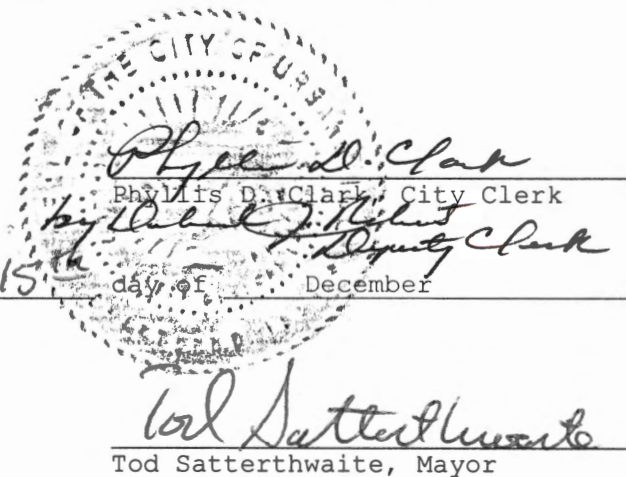 THE CITY OF URBANA
Phyllis D. Clark
Phyllis D. Clark, City Clerk
by
Deputy Clerk
15th day of December
Tod Satterthwaite
Tod Satterthwaite, Mayor